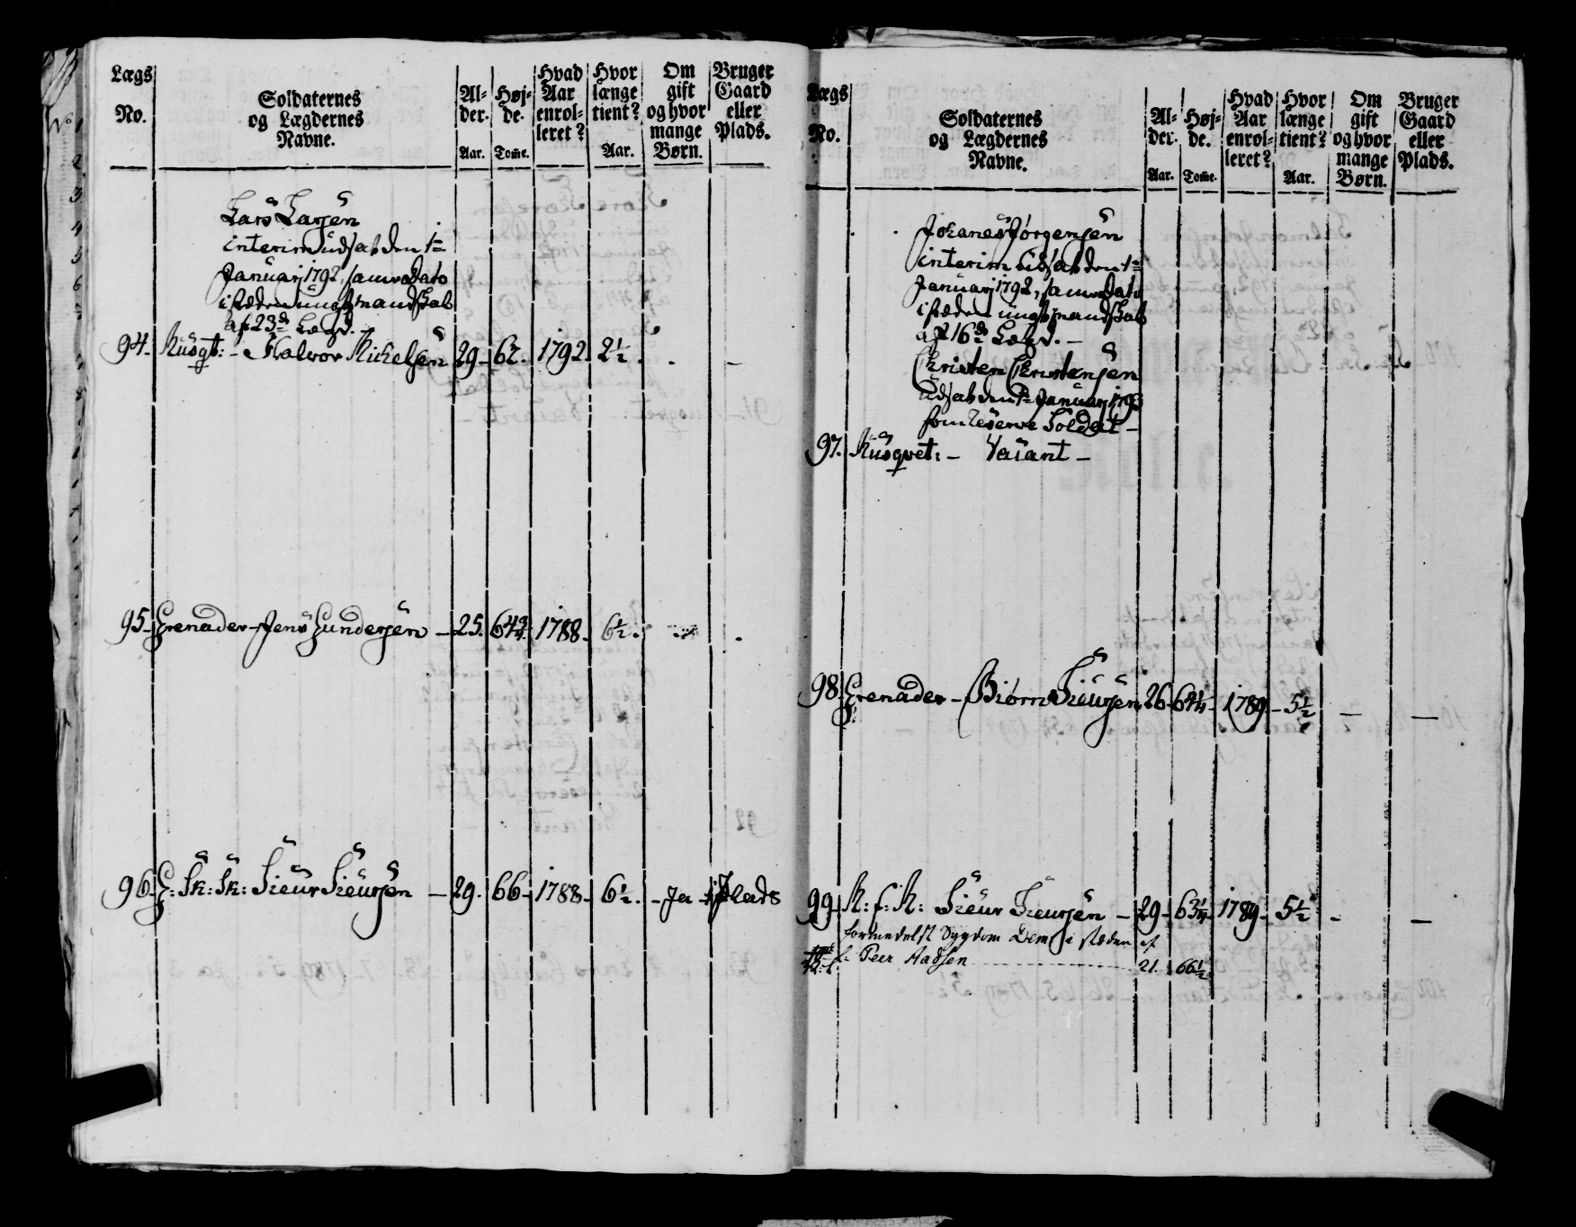 Lægs
No.
Soldaternes
og Lægdernes
Navne.
Al-
der.
Aar.
Høj-
de.
Tom̃e.
Hvad
Aar
enrol-
leret?
Hvor
længe
tient?
Aar.
Om
gift
og hvor
mange
Børn.
Bruger
Gaard
eller
Plads.
Lars Larsen
interim udsat den 1te
Januarj 1792, samme Dato
i stæden ungt mandskab
af 23de Lægd.
94. Musqt: - Halvor Mickelsen 29 - 62. 1792 2½.
95. Grenader - Jens Gundersen - 25. 64¾ 1788 - 6½.
96. G: Sk: Sk: Sieur Sieursen - 29. 66 - 1788 - 6½. - Ja - Plads
Lægs
No.
Soldaternes
og Lægdernes
Navne.
Al-
der.
Aar.
Høj-
de.
Tom̃e.
Hvad
Aar
enrol-
leret?
Hvor
længe
tient?
Aar.
Om
gift
og hvor
mange
Børn.
Bruger
Gaard
eller
Plads.
Johanes Jørgensen
interim udsat den 1te
Januarj 1792, samme Dato
i stæden ungt mandskab
af 16de Lægd. -
Christen Christensen
udsat den 1te Januarj 1793
som Reserve Soldat -
97. Musqvet: - Vacant -
98. Grenader - Biørn Sieursen 26 - 64¼ - 1789 - 5½ - -
99. M: f: M: Sieur Sieursen - 29 - 63¼ - 1789 - 5½ - -
formedelst Sygdom Dem i stæden af
Peer Aadsen 21. 66½